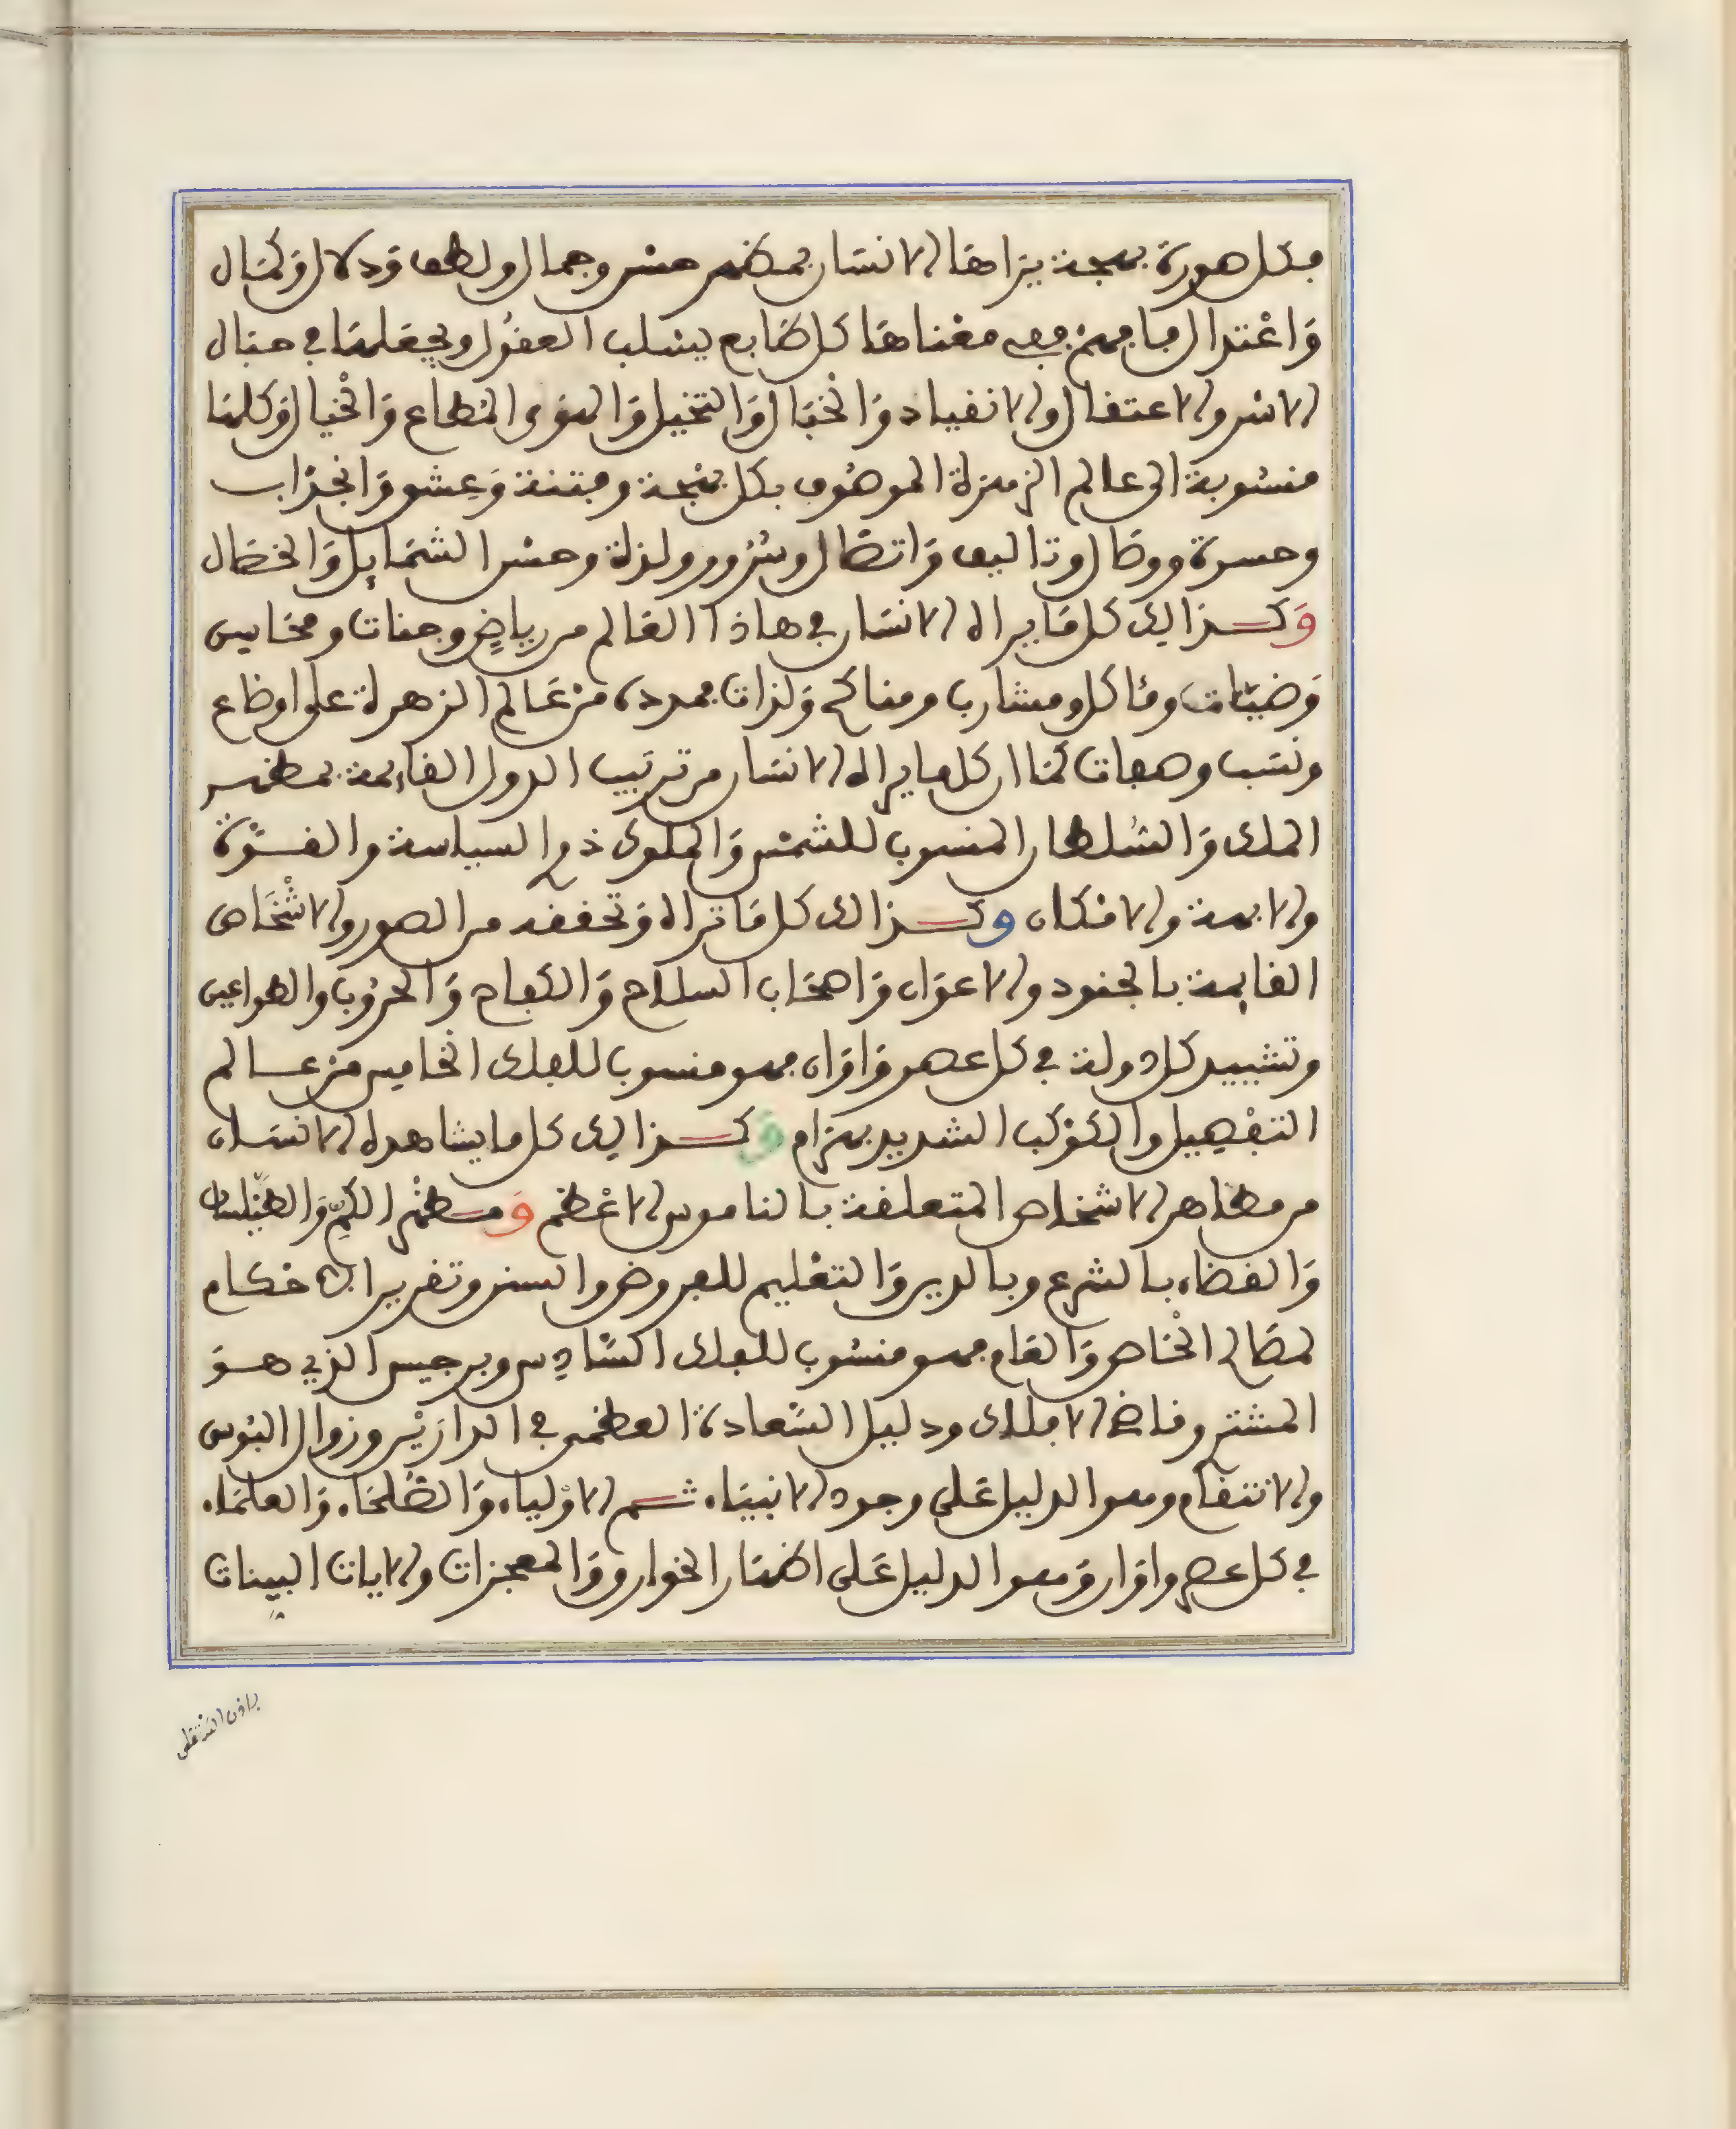 فكل صورة بهجة يراها الانسان بمظهر حسن وجمال ولطف ودلال وكمال
واعتدال فافهم ففي معناها كل طابع يسلب العقول ويجعلها في حبال
الاسر والاعتقال والانقياد والخبال والتخيل والهوى المطاع والخيال وكلها
منسوبة الى عالم الزهرة الموصوف بكل بهجة وفتنة وعشق وانجذاب
وحسرة ووصال وتاليف واتصال وسرور ولذة وحسن الشمايل والخصال
وكذالك كل ما يراه الانسان في هاذا العالم من رياض وجنات ومحاسن
وضيات وماكل ومشارب ومناكح ولذات فمدده من عالم الزهرة على اوضاع
ونسب وصفات كما ان كلما يراه الانسان من ترتيب الدول القايمة بمظهر
الملك والسلطان المنسوب للشمس والملوك ذوا السياسة والقوة
والابهة والامكان وكذالك كل ما تراه وتحققه من الصور والاشخاص
القايمة بالجنود والاعوان واصحاب السلاح والكفاح والحروب والطواعين
وتشييد كل دولة في كل عصر واوان فهو منسوب للفلك الخامس من عالم
التفصيل والكوكب الشديد بهرام وكذالك كل ما يشاهده الانسان
من مظاهر الاشخاص المتعلقة بالناموس الاعظم ومظهر الكم والطيلسان
والقضاء بالشرع وبالدين والتعليم للفروض والسنن وتقرير الاحكام
لمصالح الخاص والعام فهو منسوب للفلك السادس وبرجيس الذي هو
المشتري وقاضي الافلاك ودليل السعادة العظمى في الدارين وزوال البؤس
والانتقام وهو الدليل على وجود الانبياء ثم الاولياء والصلحاء والعلماء
في كل عصر واوان وهو الدليل على اظهار الخوارق والمعجزات والايات البينات
باذن الله تعلى